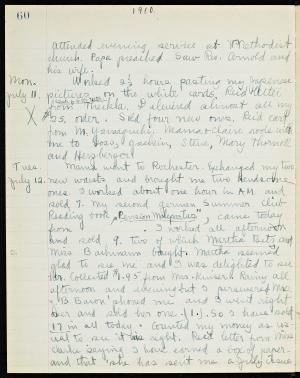 60
1910.
attended evening service at Methodist
church. Papa preached. Saw Rev. Arnold and
his wife.
Mon. Worked 2½ hours pasting my Japanese
July 11. pictures on the white cards. Rec'd letter
X from Thekla. Delivered almost all my
$5. order. Sold four new ones. Rec'd card
from M. Yamaguchi. Mama & Claire rode with
me to
and
Tues. Mama went to Rochester. Exchanged my two
July 12. new waists and brought me two handsome
ones. I worked about one hour in A.M. and
sold 7. My second german Summer Club
Reading book, " " came today
from . I worked all afternoon
and sold 9. two of which Martha Betz and
Miss Bachmann bought. Martha seemed
glad to see me and I was delighted to see
her. Collected $1.45 from Mrs. Rainy all
afternoon and evening but I persevered. Mrs.
Baron 'phoned me and I went right
over and sold her one. (1.) So I have sold
17 in all today. Counted my money as us-
ual to see if its right. Rec'd letter from Miss
Clarke saying I have earned a box of paper
and that she has sent me a July issue